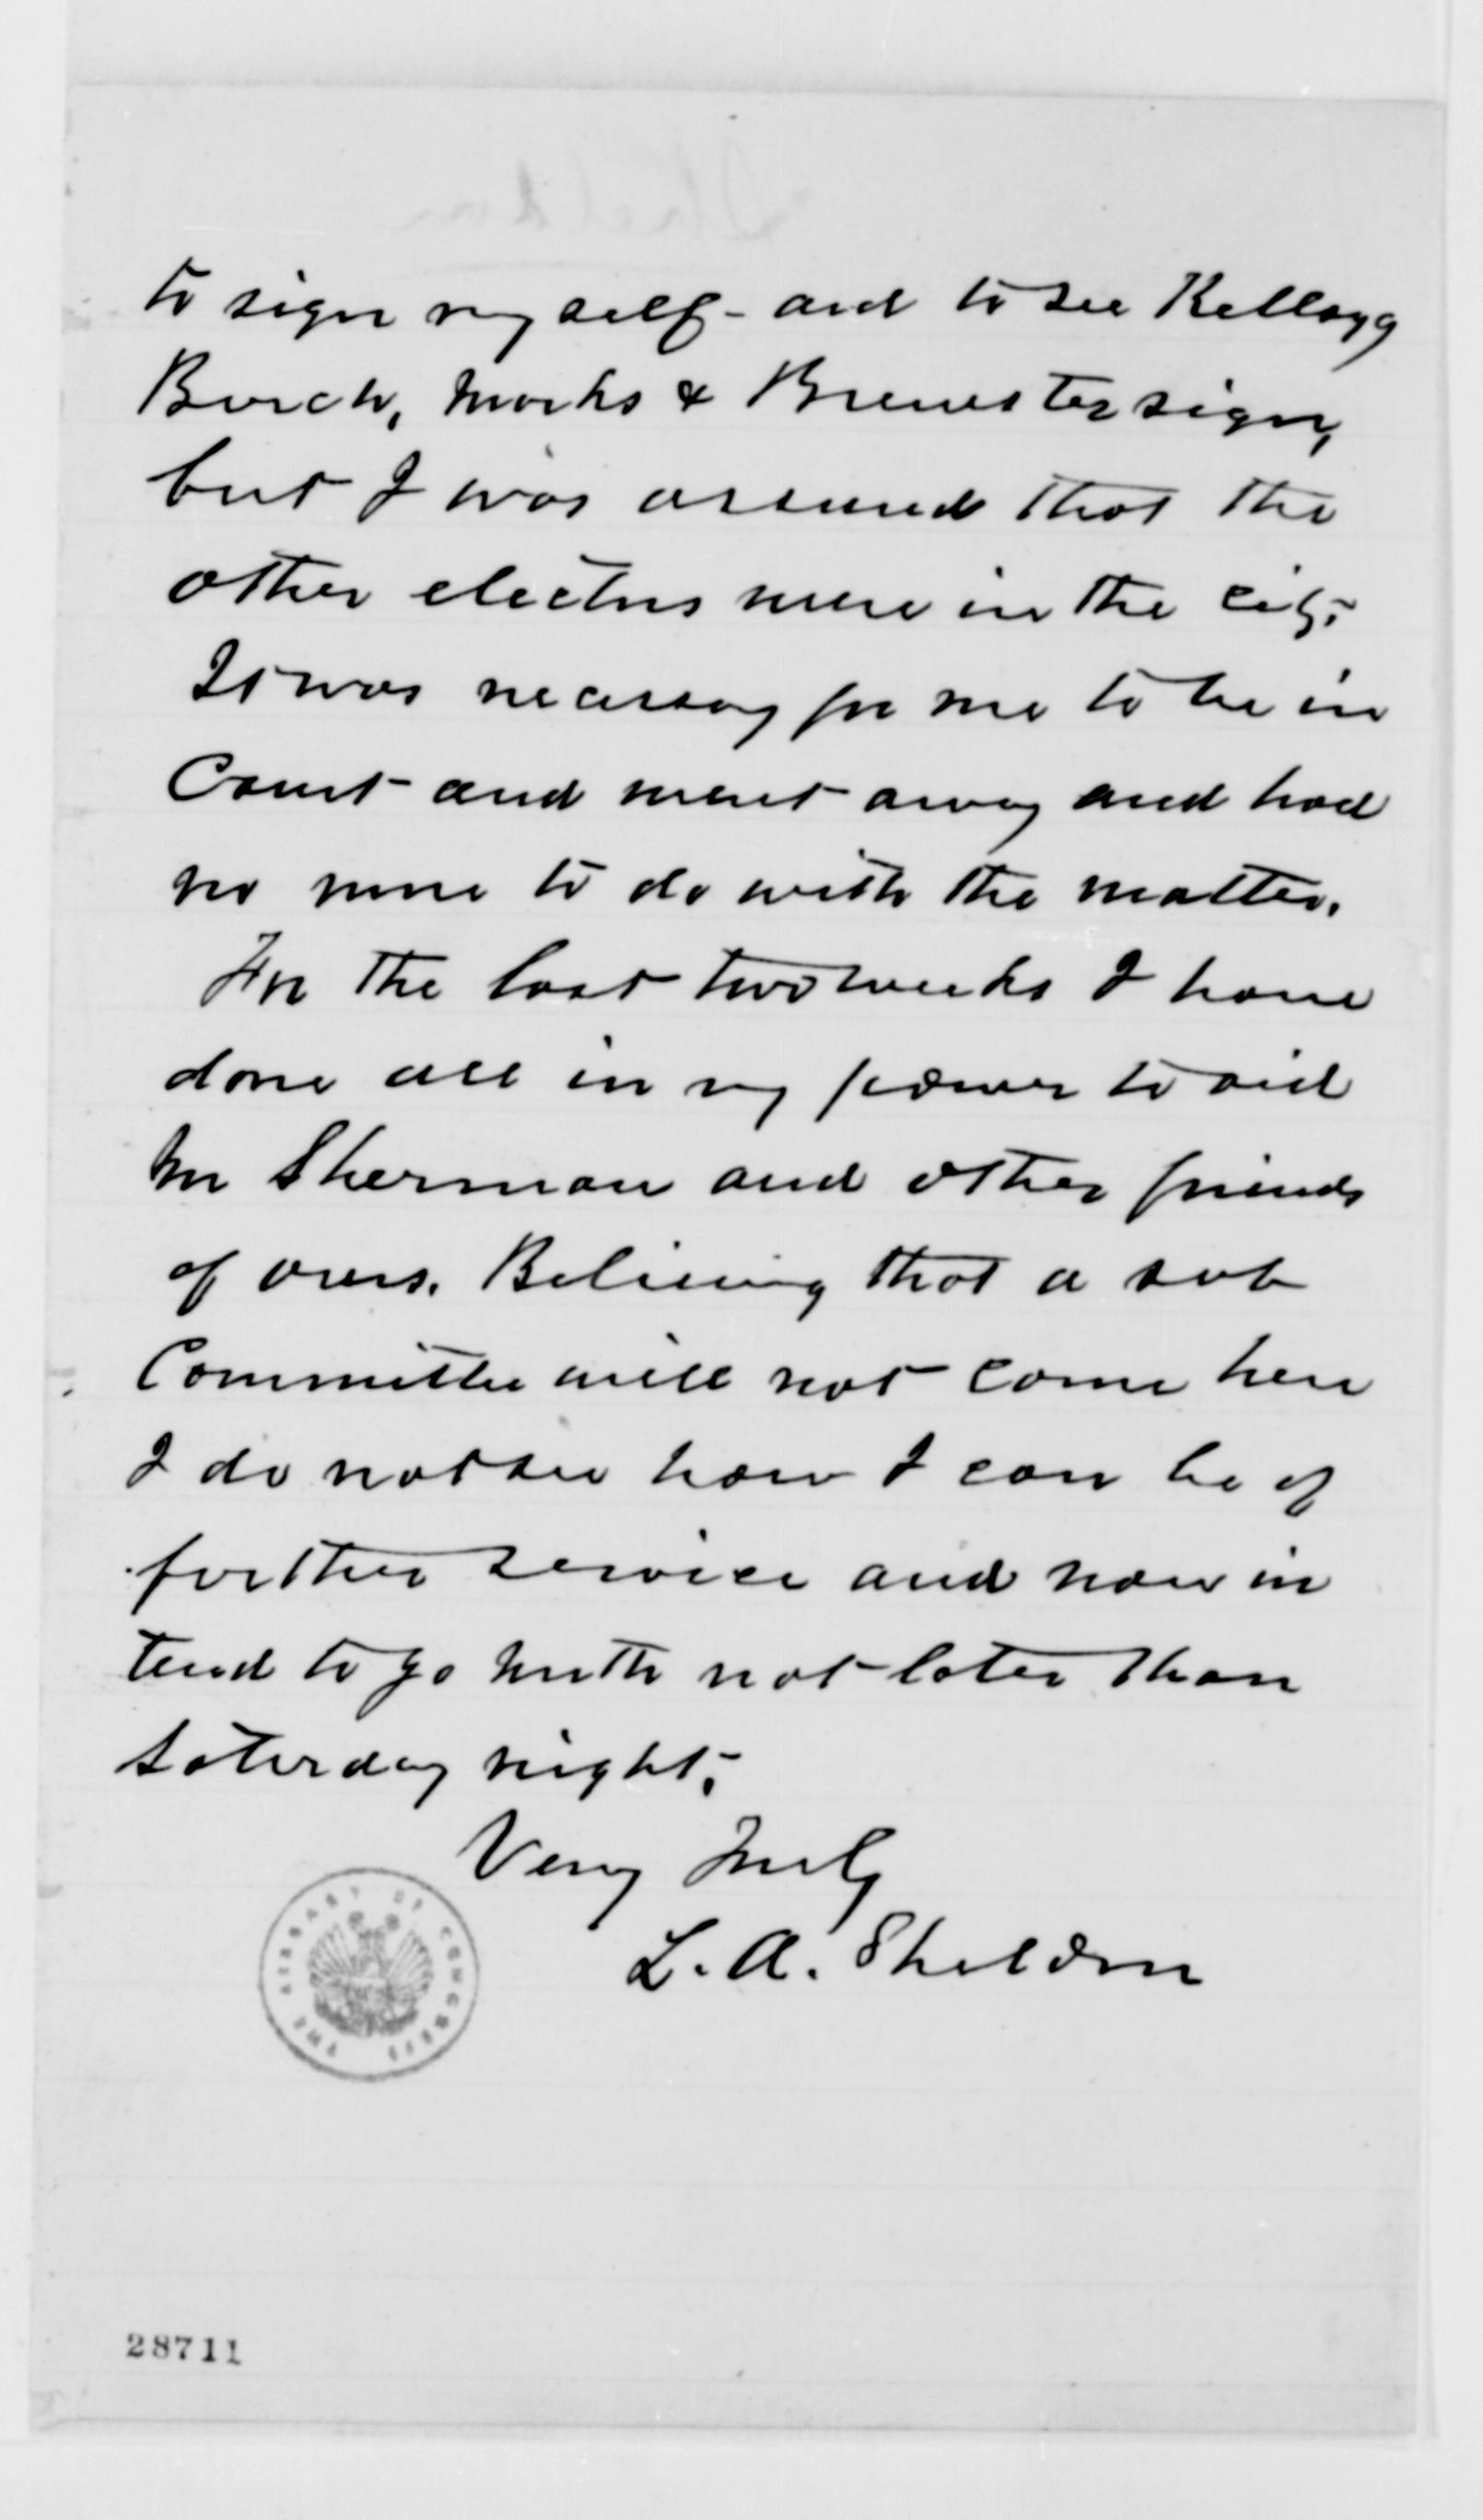 to sign myself - and to see Kellogg
Burch, Marks & Brewster sign,
but I was assured that the
other electors were in the city.
It was necessary for me to be in
Court and went away and had
no more to do with the matter.
For the last two weeks I have
done all in my power to aid
Mr Sherman and other friends
of ours. Believing that a sub
Committee will not come here
I do not see how I can be of
further service and now in
tend to go North not later than
Saturday night.
Very Truly
L. A. Sheldon
THE LIBRARY OF CONGRESS
28711